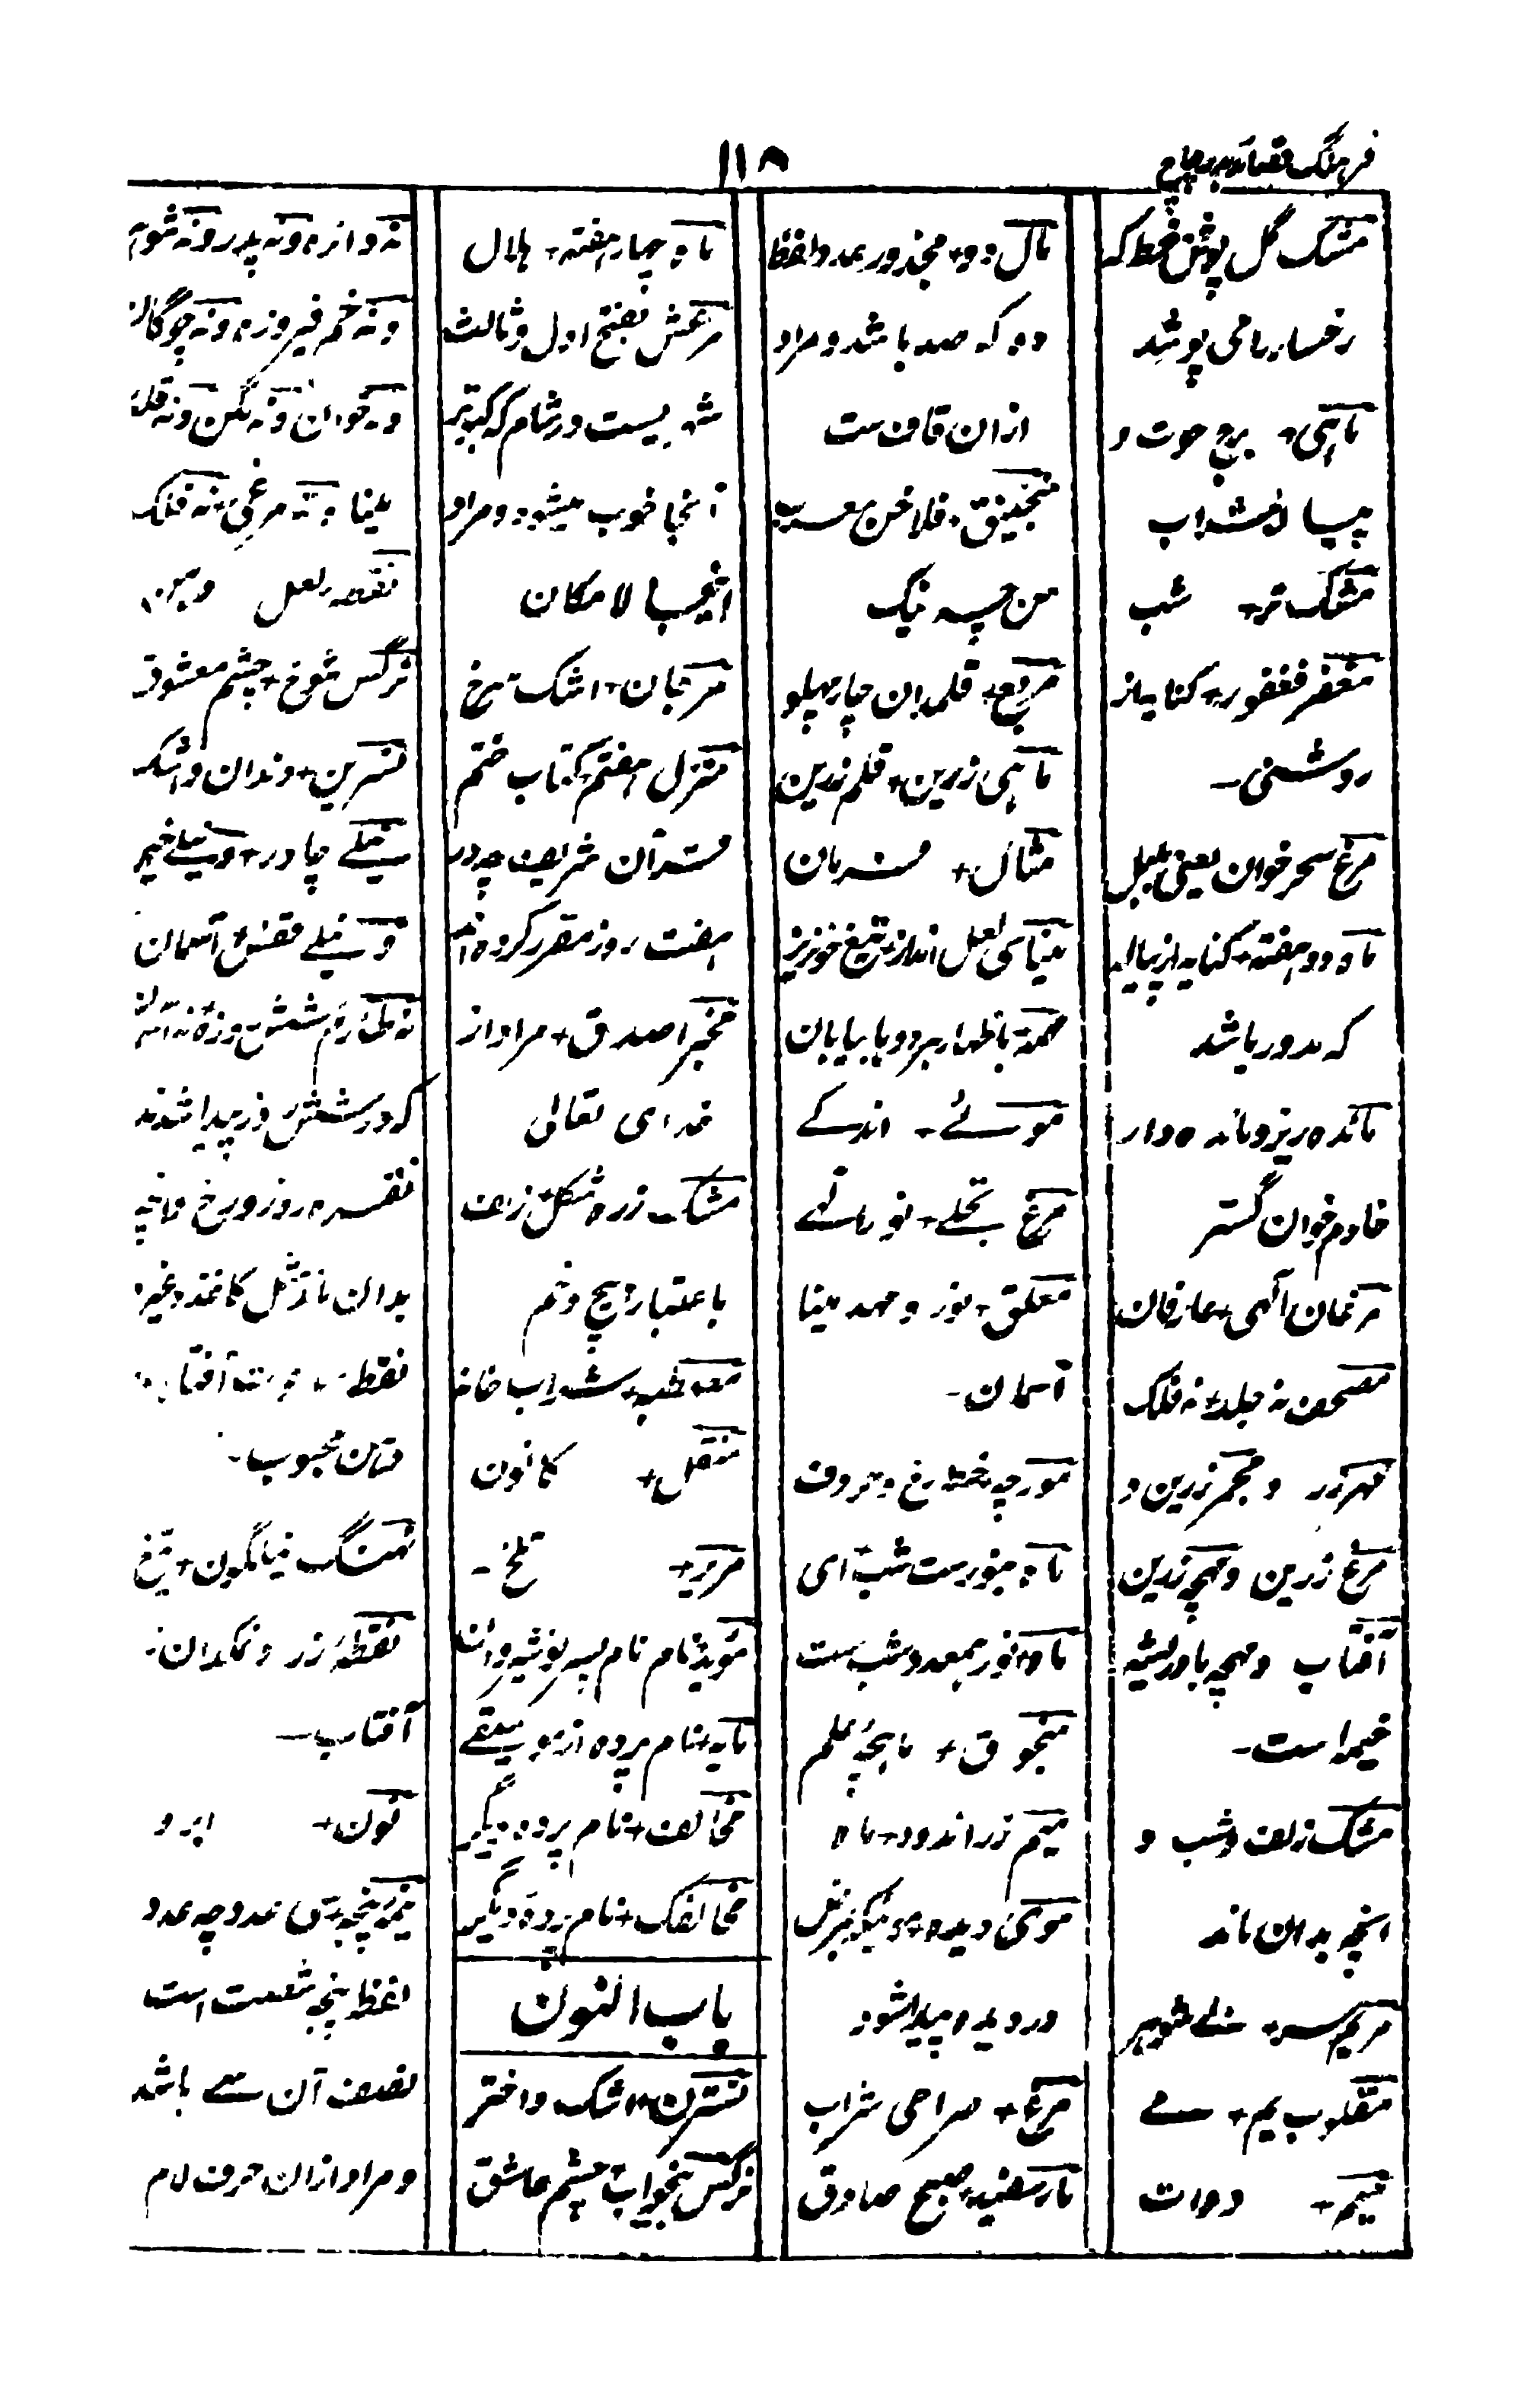 فرہنگ قصائد بدر چاچ
۱۱۸
مشک گل پوش خط که
رخسار را می پوشد
ماہی+ برج حوت و
پیالۂ شراب
مشک تر+ شب
مغفر فغفور+ کنایه از
روشنی۔
مرغ سحر خوان یعنی بلبل
ماه دو هفته+ کنایه از پیاله
که مدور باشد
مائده ریز و مائده دار
خادم خوان گستر
مرغان الٰهی+ عارفان
مصحف نه جلد+ نه فلک
مهر زر و مجمر زرین و
مرغ زرین و مهچه زرین
آفتاب و مهچه باد ریشه
خیمه است۔
مشک زلف و شب و
انچه بدان ماند
مریم سه+ شوهر
مقلوب یم+ مے
میم+ دوات
مال دو+ مجذور عدد لفظ
دو که صد باشد و مراد
ازان قاف ست
منجنیق+ فلاخن معرب
من چه نیک
مربع+ قلمدان چار پهلو
ماہی زرین+ قلم زرین
مثال+ فرمان
مینای لعل انداز+ تیغ خونریز
بیابان
موئے+ اندکے
مرغ تجلے+ نور الٰهے
معلق+ نور و مهد مینا
آسمان۔
مورچه+ خط رخ و حروف
ماه منورست شب ای
ماه+ نور بعد دشب ست
منجوق+ ماہچۂ علم
میم زر اندود+ ماه
موی دیده+
در دیده پیدا شود
مرغ+ صراحی شراب
مار سفید+ صبح صادق
ماه چار هفته+ هلال
مرعش بفتح اول و ثالث
شهریست در شام که کبوتر
آنجا خوب میشود و مراد
اینجا لامکان
مرجان+ اشک سرخ
منزل هفتم+ کتاب ختم
قرآن شریف چه در
هفت روز مقرر کرده اند
مخبر اصدق+ مراد از
خدای تعالی
مشک زره شکل+ زلف
باعتبار پیچ و خم
شراب خانه
منقل+ کانون
مریر+ تلخ۔
نام نام پسر نوشیروان
مایه+ نام پرده از موسیقے
مخالف+ نام پرده دیگر
مخالفک+ نام پرده دیگر
باب النون
نسترن+ اشک و اختر
نرگس بیخواب+ چشم عاشق
نه دائره و نه پدر و نه شوهر
و نه خم فیروزه و نه چوگان
و نه خوان و نه لگن و نه قلعه
مینا و نه مرغی+ نه فلک
لعل دهن
نرگس شوخ+ چشم معشوق
نسرین+ دندان و اشک
نیلے چادر+ و نیلے خیمه
و نیلے قفس+ آسمان
نه طارم شش روزه+ نه آسمان
که در شش روز پیدا شدند
نقره+ روز و رخ و انچه
بدان ماند مثل کاغذ و غیره
آفتاب و
دهان محبوب۔
نهنگ نیلگون+ تیغ
نقطۂ زر و نمکدان+
آفتاب۔
نون+ ابرو
نیمۂ پنجه+ سی عدد چه عدد
لفظ پنجه شصت است
نصف آن سے باشد
و مراد ازان حرف لام